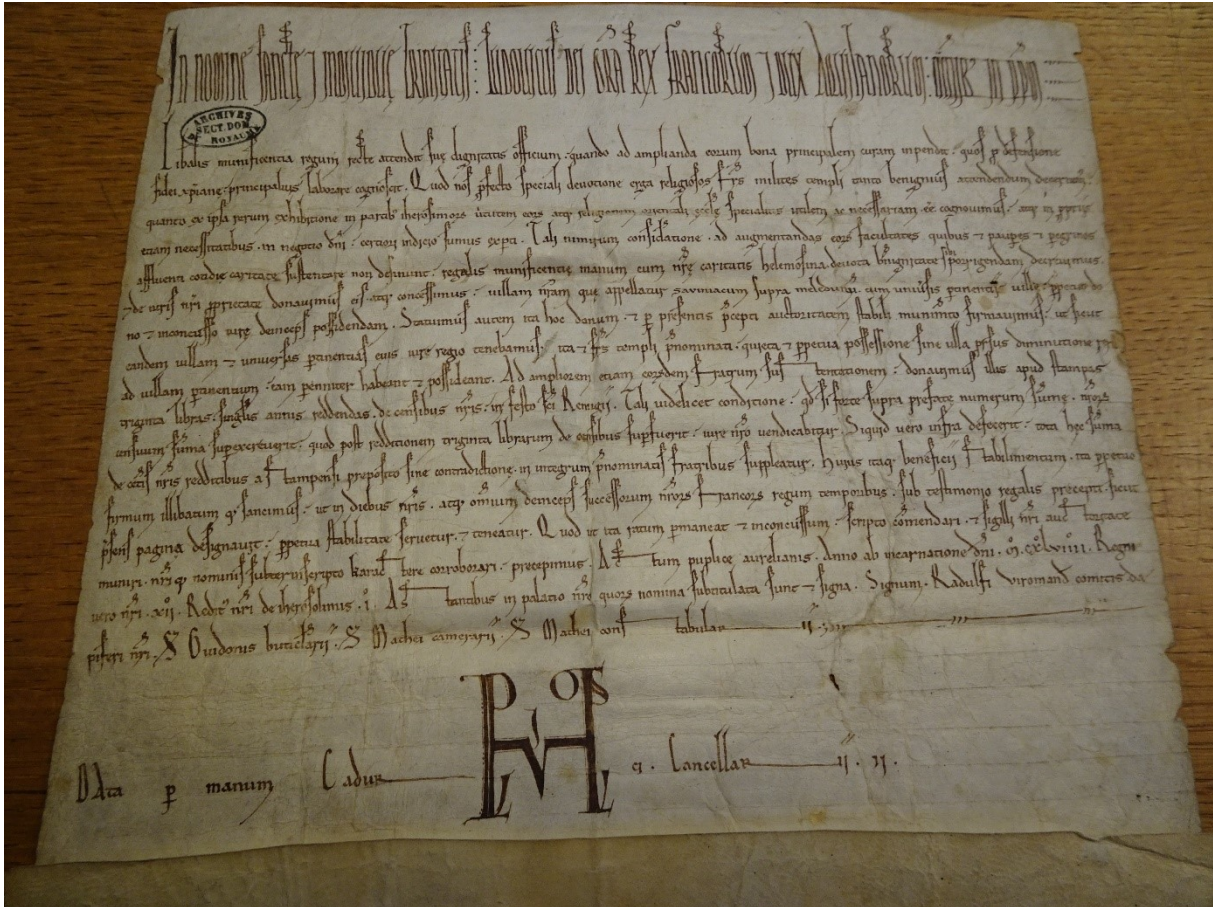 In nomine sanctę ⁊ indiuiduę trinitatis : ludouicus dei gr̄a rex francorum ⁊ dux aquitanorum : omnibus in
ARCHIVES
SECT. DOM.
ROYALE
Libalis munificentia regum recte attendit suę dignitatis officium : quando ad amplianda eorum bona principalem curam inpendit : quos p defensione
fidei xp̄iane : principalius laborare cognoscit . Quod nos pfecto speciali deuotione erga religiosos fr̄s milites templi tanto benignius attendendum
quanto ex ipsa rerum exhibitione in partib iherosimors ututem eors atq religionem orientali specialius utilem ac necessariam ēē cognouimus : atq in ppriis
etiam necessitatibus . in negotio dn̄i . certiori indicio sumus expti . Tali nimirum consideratione . ad augmentandas eors facultates quibus ⁊ paupes ⁊ pegrinos
affluenti cotidie caritate sustentare non desinunt : regalis munificentię manum cum nr̄ę caritatis helemosina . deuota benignitate porrigendam decreuimus .
⁊ de uiris nr̄i pprietate donauimus eis . atq concessimus : uillam nr̄am quę appellatur sauiniacum supra meledunū . cum uniuersis ptinentiis uillę : ppetuo do
no ⁊ inconcusso iure deinceps possidendam . Statuimus autem ita hoc donum . ⁊ p presentis pcepti auctoritatem stabili munim̄to firmauimus : ut sicut
eandem uillam ⁊ uniuersas ptinentias eius iure regio tenebamus : ita ⁊ fr̄s templi pnominati . quieta ⁊ ppetua possessione sine ulla psus diminutione
ad uillam ptinentium : eam penniter habeant ⁊ possideant . Ad ampliorem etiam eorsdem fratrum sustentationem : donauimus illis apud stampas
triginta libras . singulis annis reddendas . de censibus nr̄is . in festo sc̄i Remigii . Tali uidelicet conditione . qd si forte supra prefatę numerum sūmę . nr̄ors
censuum sūma supexcreuerit : quod post redditionem triginta librarum de censibus supfuerit : iure nr̄o uendicabitur . Siquid uero infra defecerit : tota hęc sūma
de cet̄is nr̄is redditibus a stampensi preposito sine contradictione . in integrum pnominatis fratribus suppleatur . Huius itaq beneficii stabilimentum . ita ppetuo
firmum illibatum q sancimus : ut in diebus nr̄is . atq omnium deinceps successorum nr̄ors francors regum temporibus . sub testimonio regalis precepti . sicut
psens pagina designauit : ppetua stabilitate seruetur . ⁊ teneatur . Quod ut ita ratum pmaneat ⁊ inconuulsum : scripto cōmendari . ⁊ sigilli nr̄i auctoritate
muniri . nr̄i q nominis subterinscripto karactere corroborari . precepimus . Actum puplice aurelianis . Anno ab incarnatione dn̄i . M . CXLVIIII . Regni
uero nr̄i . xii . Redit nr̄i de iherosolimis . i . Astantibus in palatio nr̄o quors nomina subtitulata sunt ⁊ signa . Signum . Radulfi Viromand comitis da
piferi nr̄i . S Guidonis buticularii . S Mathei camerarii . S Mathei constabularii
Data p manum Cadur ci . Cancellar ii . ii .